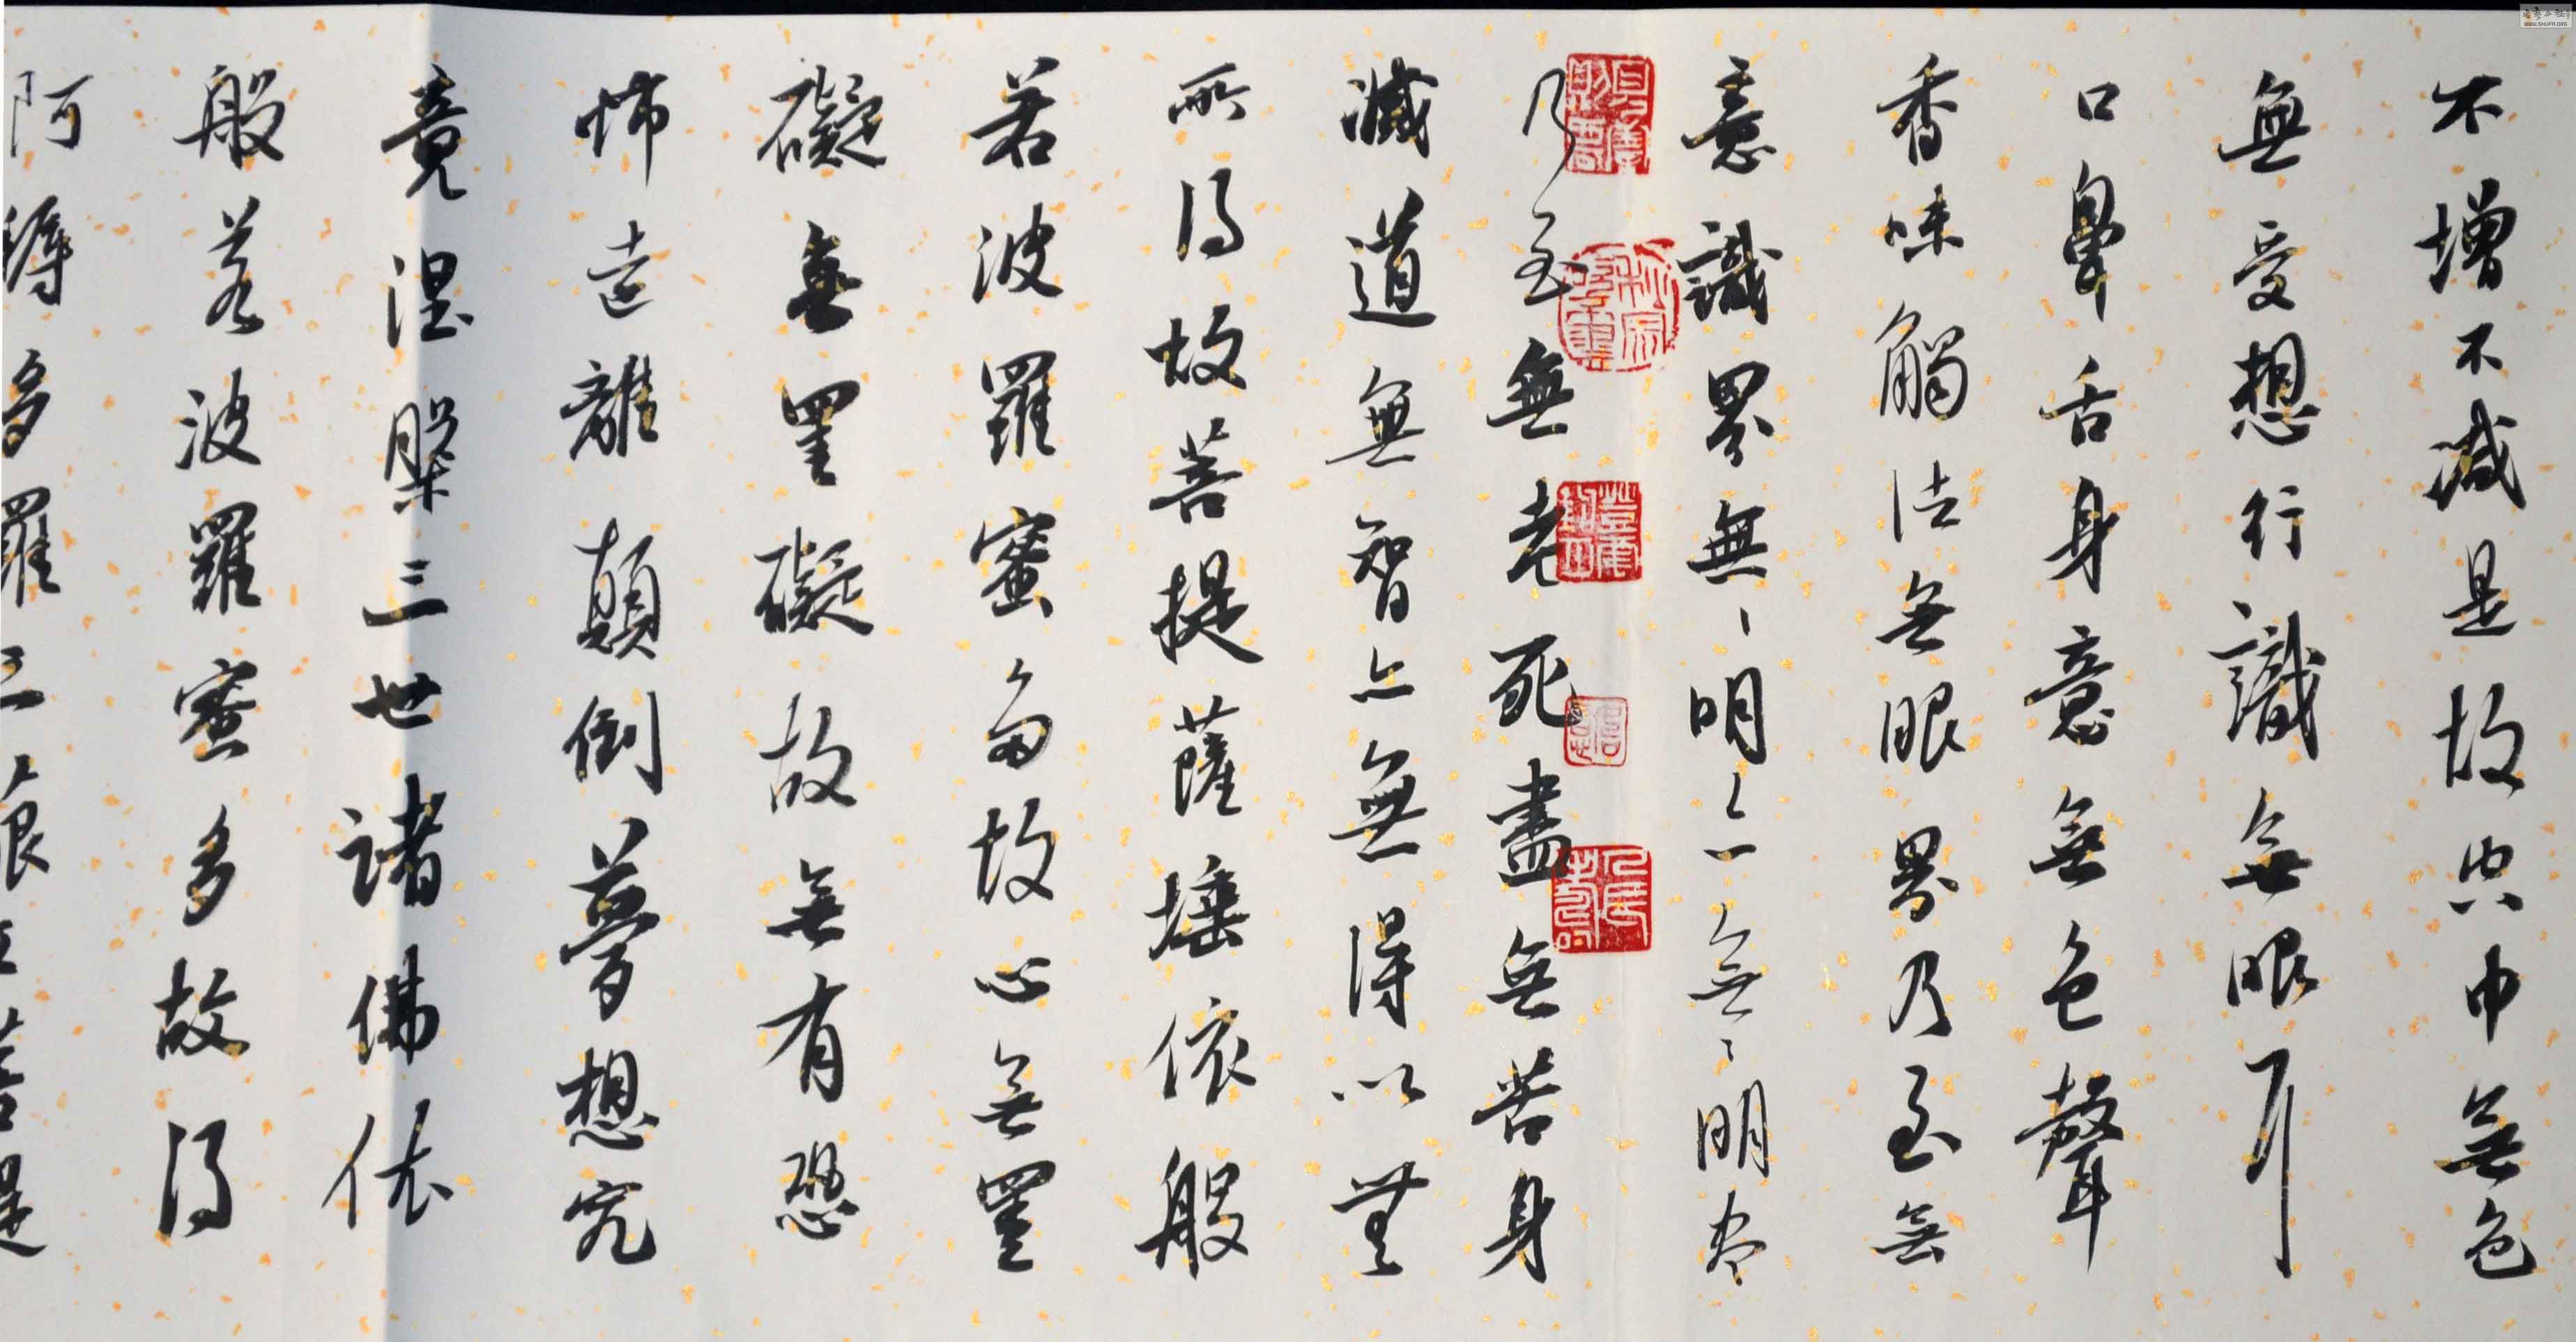 不增不減是故空中無色
無受想行識無眼耳
口鼻舌身意無色聲
香味觸法無眼界乃至無
意識界無、明亦無、明盡
乃至無老死盡無苦身
滅道無智亦無得以無
所得故菩提薩埵依般
若波羅蜜多故心無罣
礙無罣礙故無有恐
怖遠離顛倒夢想究
竟涅槃三世諸佛依
般若波羅蜜多故得
阿耨多羅三藐三菩提
WWW.SHUFA.ORG